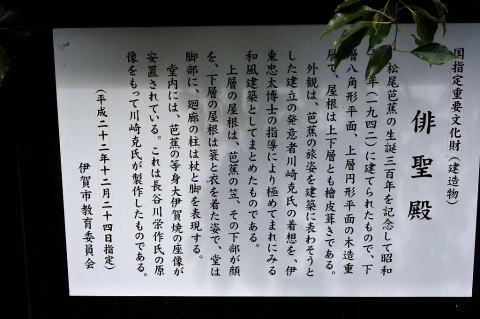 国指定重要文化財（建造物）
俳聖殿
松尾芭蕉の生誕三百年を記念して昭和
年（一九四二）に建てられたもので、下
層八角形平面、上層円形平面の木造重
層で、屋根は上下層とも檜皮葺きである。
外観は、芭蕉の旅姿を建築に表わそうと
した建立の発意者川崎克氏の着想を、伊
東忠太博士の指導により極めてまれにみる
和風建築としてまとめたものである。
上層の屋根は、芭蕉の笠、その下部が顔
を、下層の屋根は蓑と衣を着た姿で、堂は
脚部に、廻廊の柱は杖と脚を表現する。
堂内には、芭蕉の等身大伊賀焼の座像が
安置されている。これは長谷川栄作氏の原
像をもって川崎克氏が製作したものである。
（平成二十二年十二月二十四日指定）
伊賀市教育委員会